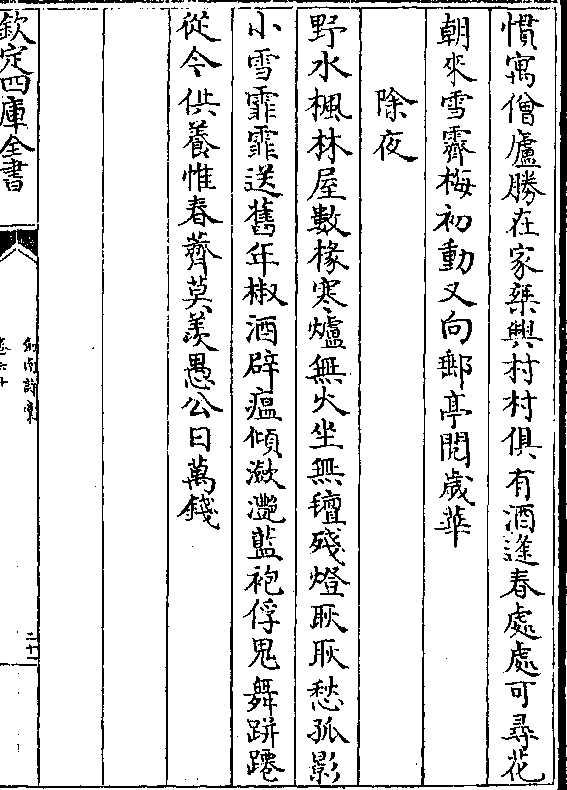 慣寓僧廬勝在家乗興村村俱有酒逢春處處可尋花
朝來雪霽梅初動又向郵亭閱歲華
除夜
野水楓林屋數椽寒爐無火坐無氊殘燈耿耿愁孤影
小雪霏霏送舊年椒酒辟瘟傾瀲灧藍袍俘鬼舞跰𨇤
從今供養惟春薺莫羡愚公日萬錢
欽定四庫全書
劍南詩槀
卷六十
二十二